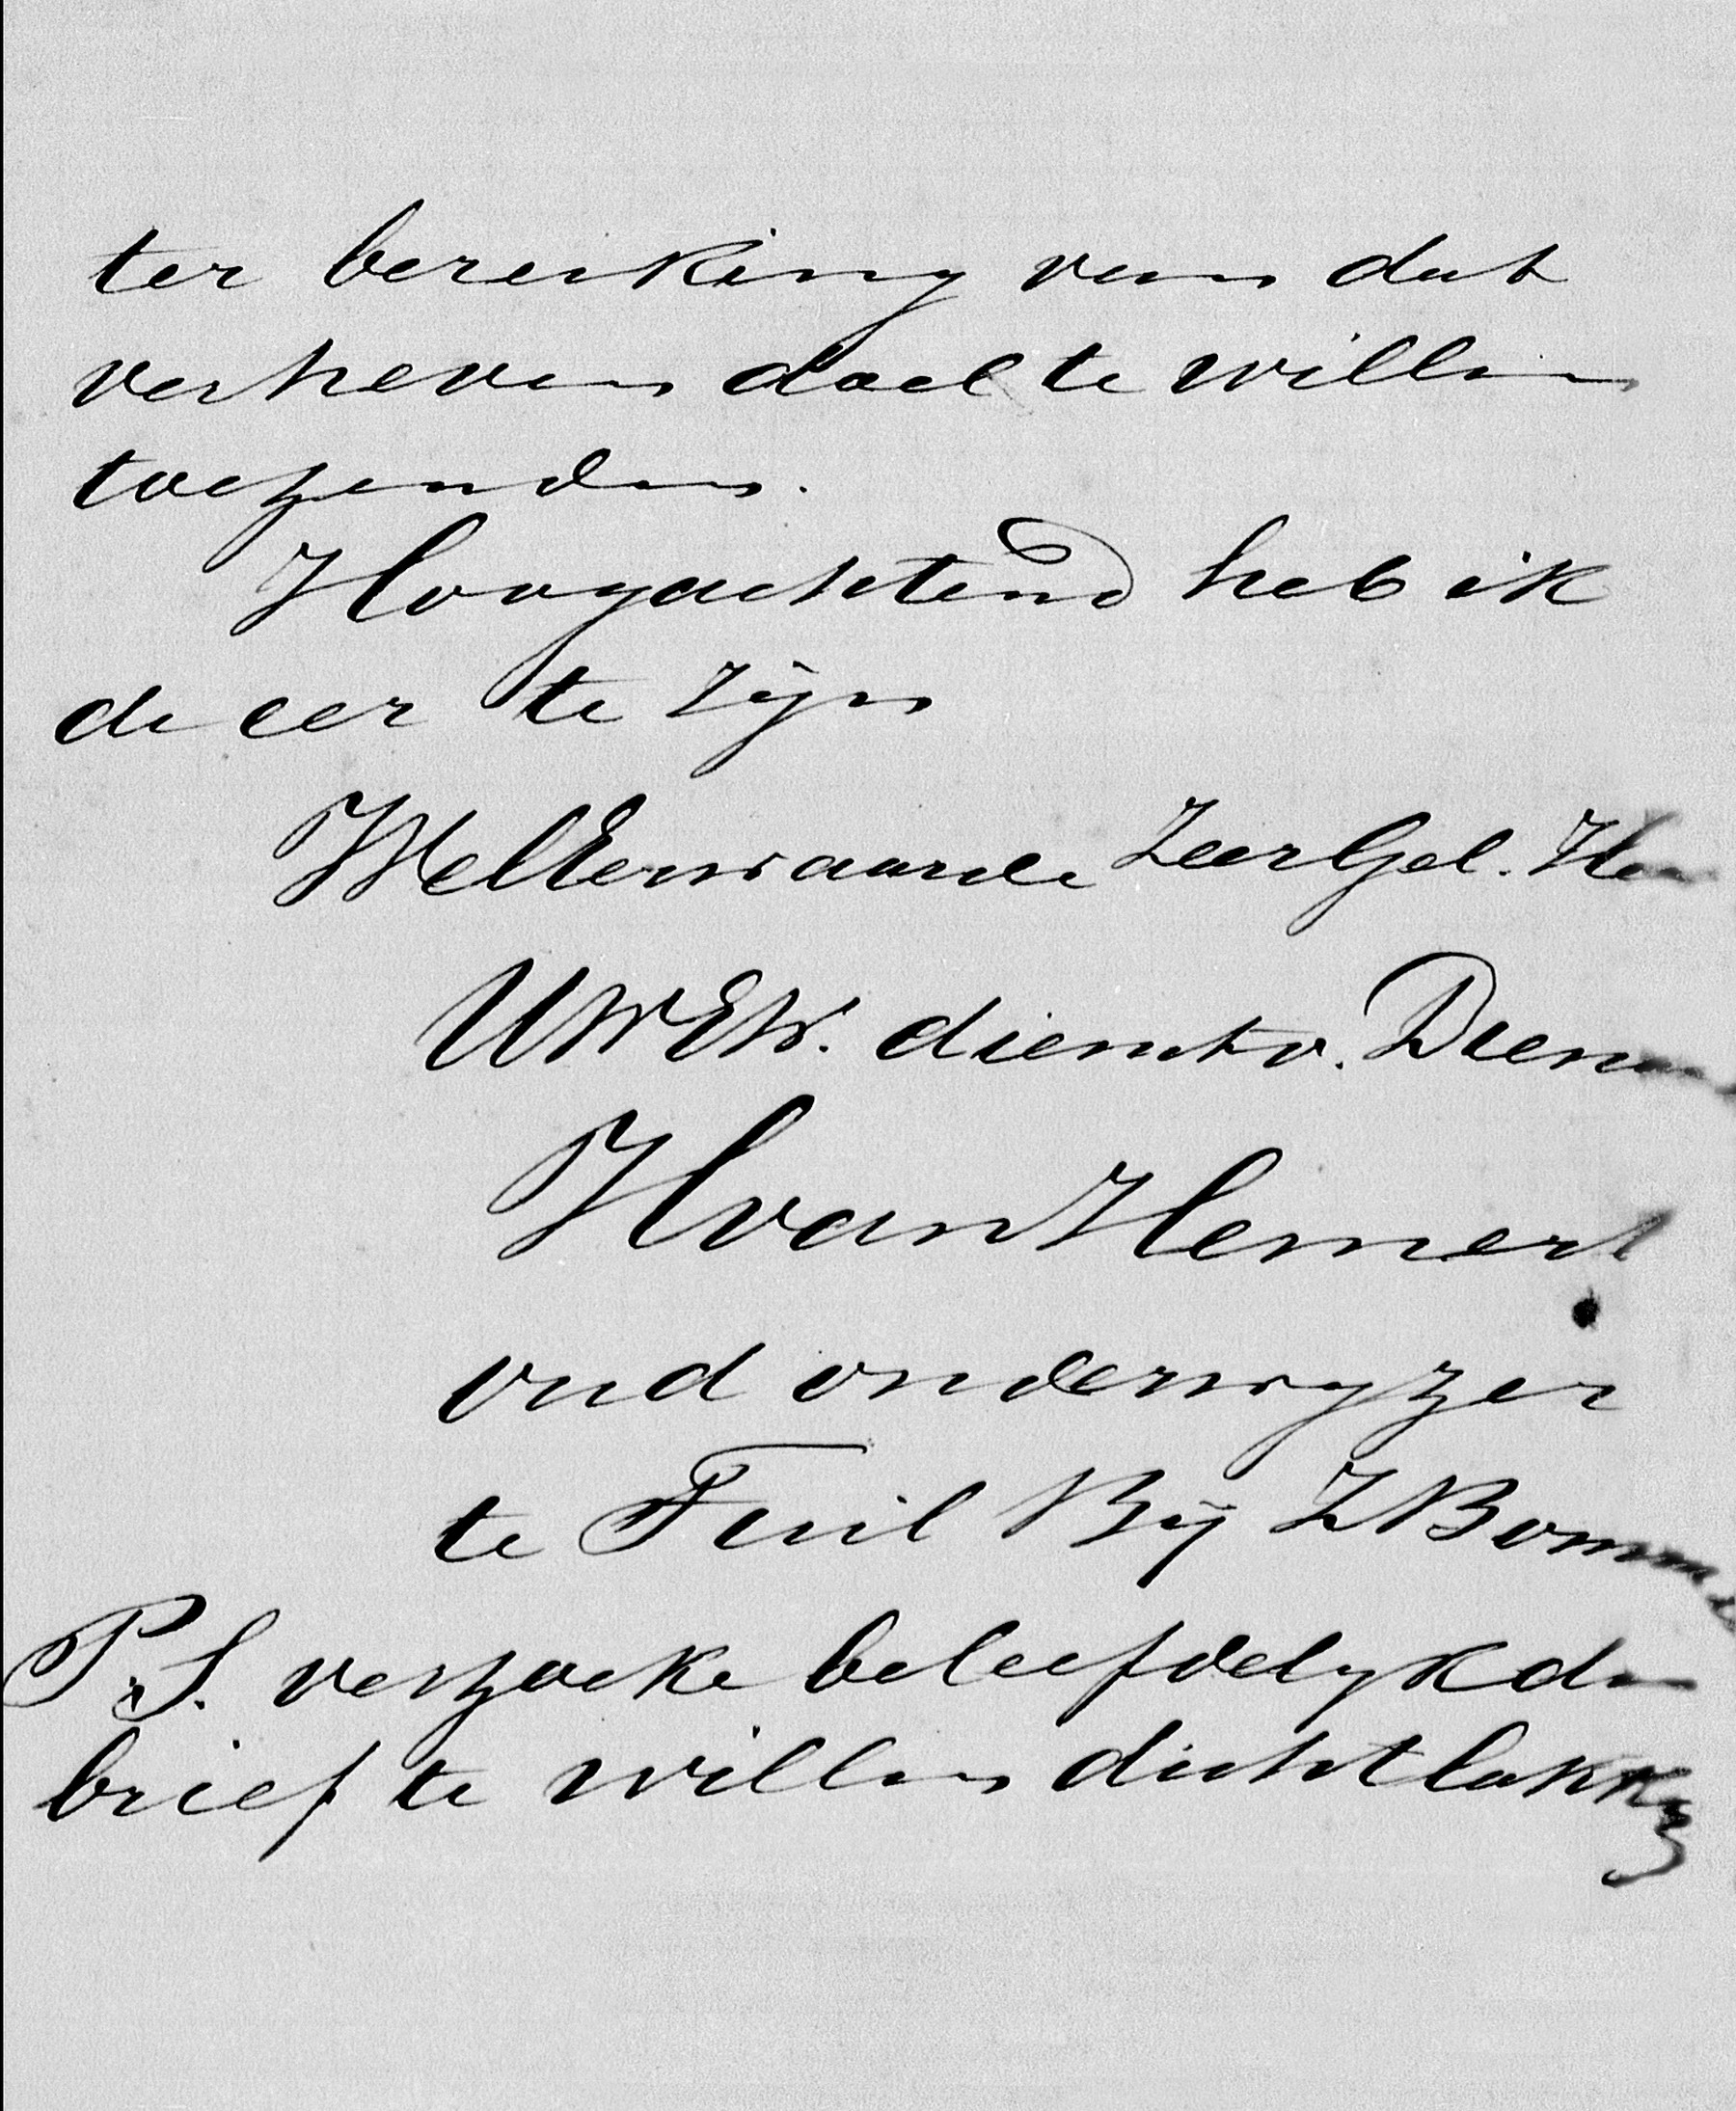 ter bereiking van dat
verheven doel te willen
toezenden.
Hoogachtend heb ik
de eer te zijn
WelEerwaarde ZeerGel. Heer
UWEW. dienstv. Dienaar
H van Hemert
oud onderwyzer
te Tuil Bij ZBommel
P.S. verzoeke beleefdelyk den
brief te willen dichtlakken